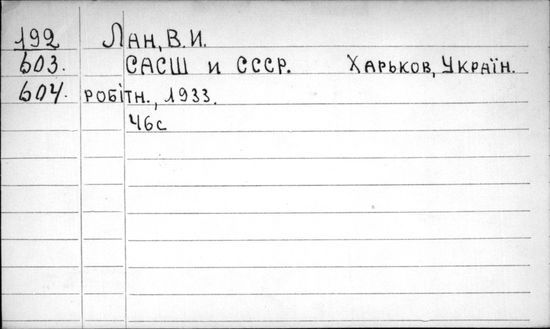 192 Лан, В. И.
603. САСШ и СССР. Харьков, Україн.
604. робітн., 1933.
46с